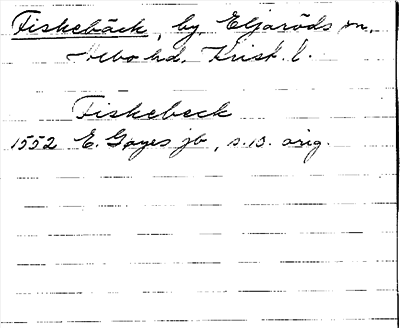 Fiskebäck, by, Eljaröds sn,
Albo hd. Krist. l.
Fiskebeck
1552 E. Gøyes jb, s. 13. orig.